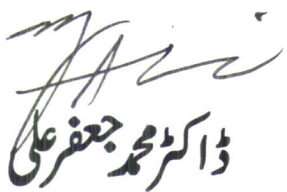 ڈاکٹر محمد جعفر علی